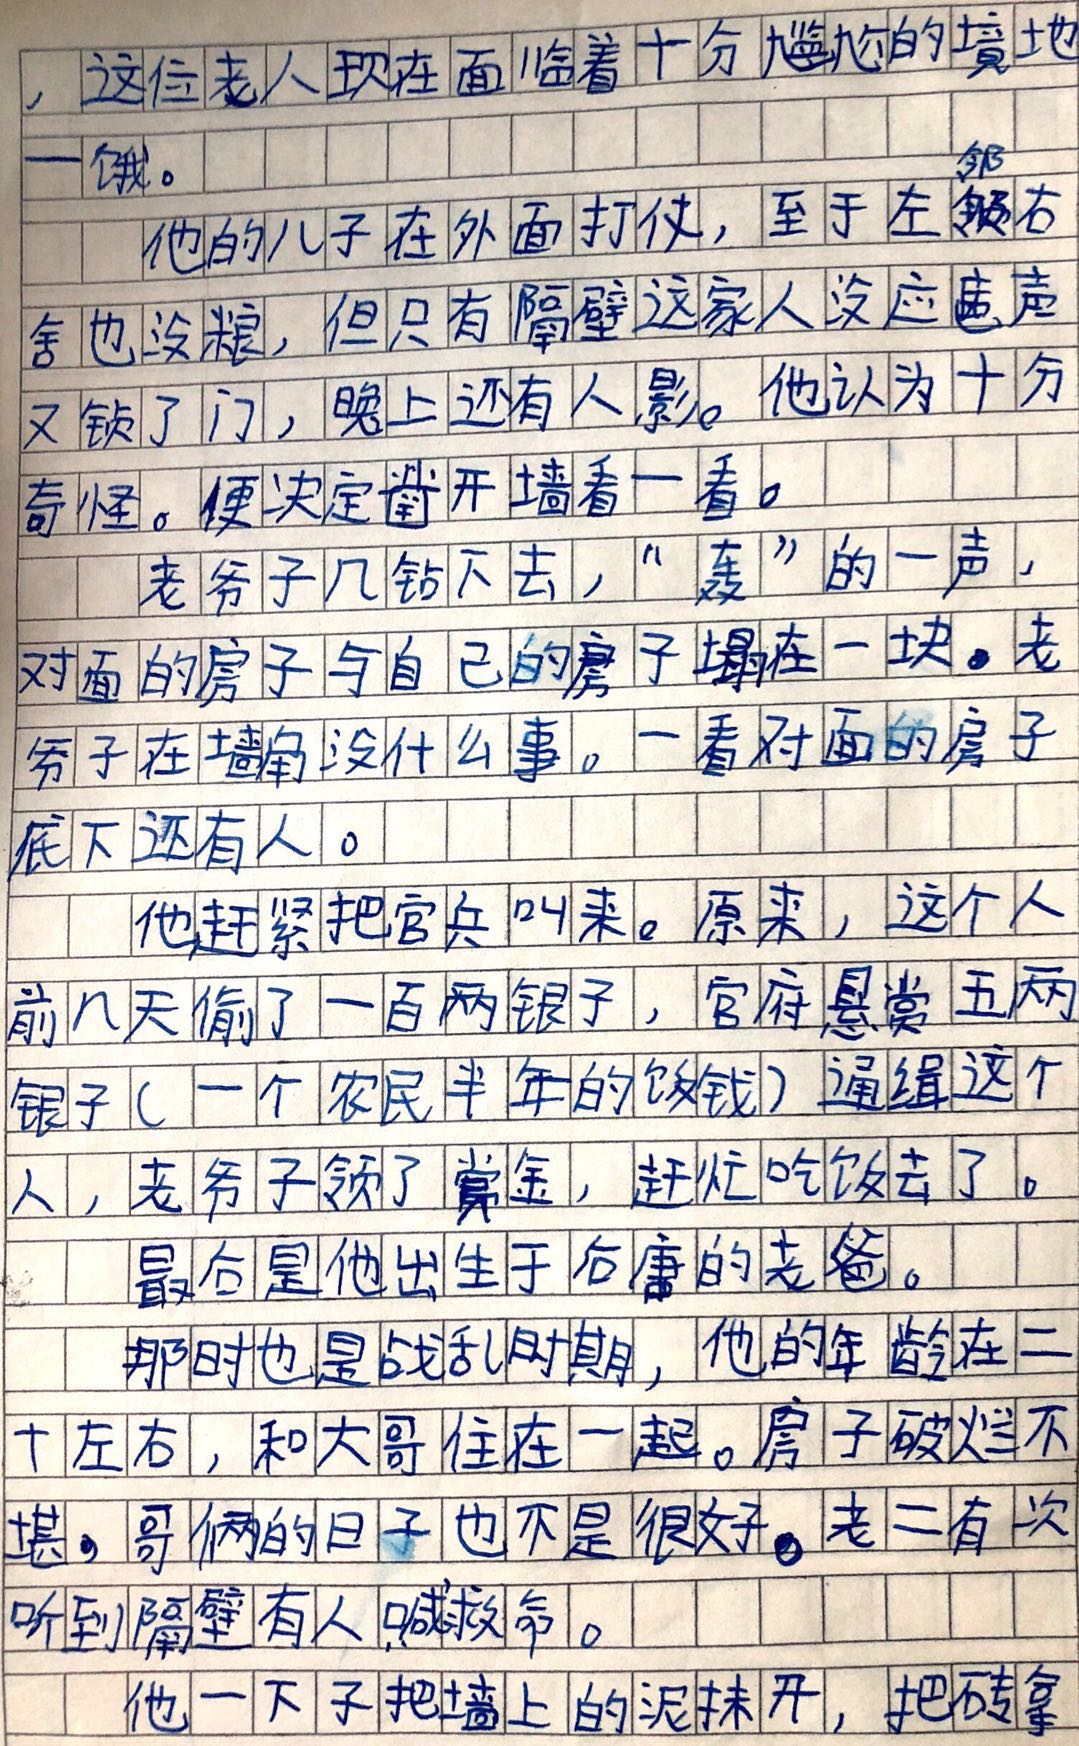 ，这位老人现在面临着十分尴尬的境地
一饿。
他的儿子在外面打仗，至于左邻右
舍也没粮，但只有隔壁这家人没应声
又锁了门，晚上还有人影。他认为十分
奇怪。便决定凿开墙看一看。
老爷子几钻下去，“轰”的一声，
对面的房子与自己的房子塌在一块。老
爷子在墙角没什么事。一看对面的房子
底下还有人。
他赶紧把官兵叫来。原来，这个人
前几天偷了一百两银子，官府悬赏五两
银子（一个农民半年的饭钱）通缉这个
人，老爷子领了赏金，赶忙吃饭去了。
最后是他出生于后唐的老爸。
那时也是战乱时期，他的年龄在二
十左右，和大哥住在一起。房子破烂不
堪。哥俩的日子也不是很好。老二有次
听到隔壁有人喊救命。
他一下子把墙上的泥抹开，把砖拿